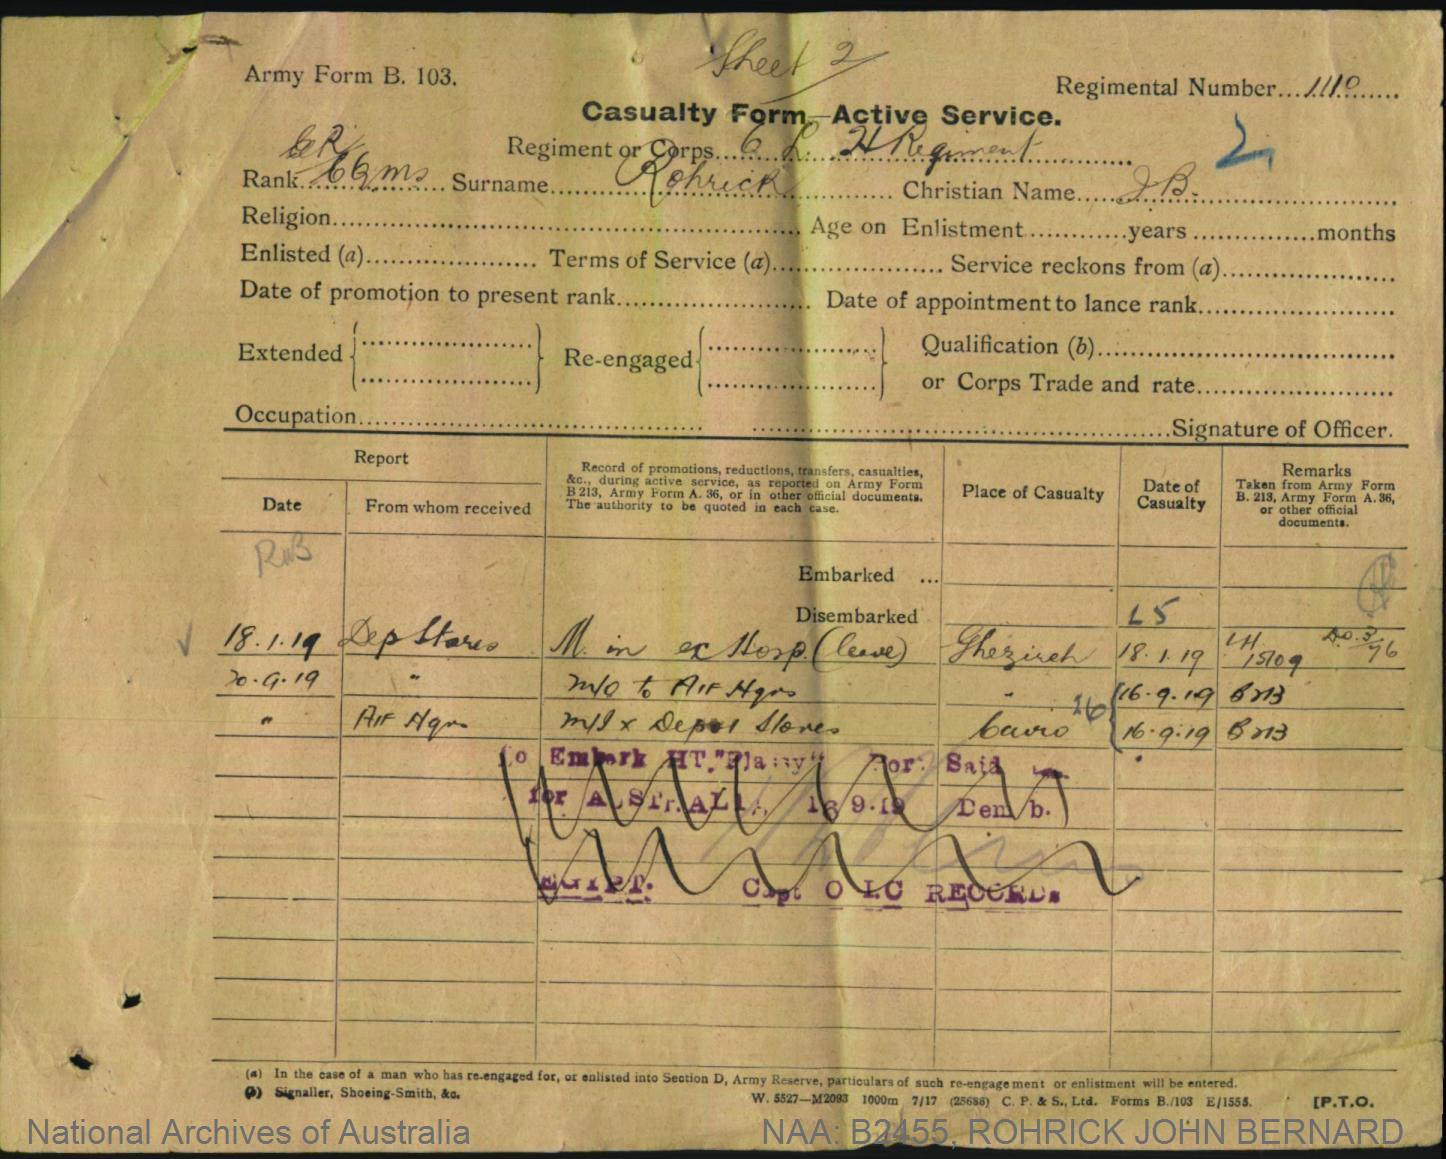 Sheet 2
Army Form B. 103.
Regimental Number....1110......
Casualty Form—Active Service.
Regiment or Corps...6 L. H Regiment.............
2
Rank..CQMS........ Surname..........Rohrick............ Christian Name.....J.B...................
Religion............................................................. Age on Enlistment............years ...............months
Enlisted (a)..................... Terms of Service (a)..................... Service reckons from (a)......................
Date of promotion to present rank........................ Date of appointment to lance rank.........................
Extended Re-engaged Qualification (b)......................................
or Corps Trade and rate.........................
Occupation............................................ .....................................................Signature of Officer.
Report
Date
From whom received
Record of promotions, reductions, transfers, casualties,
&c., during active service, as reported on Army Form
B 213, Army Form A. 36, or in other official documents.
The authority to be quoted in each case.
Place of Casualty
Date of
Casualty
Remarks
Taken from Army Form
B. 213, Army Form A. 36,
or other official
documents.
Embarked ...
Disembarked L5
18.1.19 Dep Stores M. in ex Hosp. (leave) Ghezireh 18.1.19 LH 15109 D.O. 3/76
20.9.19 " M/O to AIF Hqrs " 16.9.19 B213
" AIF Hqrs M/I x Depot Stores Cairo 16 16.9.19 B213
to Embark HT."Plassy" Port Said
for AUSTRALIA. 16 9.19 Demob.
EGYPT. Capt O I.C RECORDs
(a) In the case of a man who has re-engaged for, or enlisted into Section D, Army Reserve, particulars of such re-engagement or enlistment will be entered.
(b) Signaller, Shoeing-Smith, &c.
W. 5527—M2093 1000m 7/17 (25688) C. P. & S., Ltd. Forms B./103 E/1555. [P.T.O.
National Archives of Australia NAA: B2455, ROHRICK JOHN BERNARD